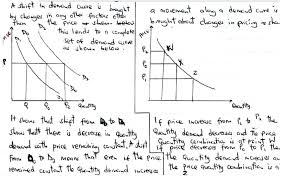 A shift in demand curve is brought
by changes in any other factors other
than the price as shown below
this leads to a complete
set of demand curve
as shown below.
Price
P
D₁
Quantity
It shows that shift from
show that there is decrease in Quantity
demand with price remaining constant. A shift
from Q, to D₂ means that even if the price
remained constant the Quantity demand increase
a movement along a demand curve is
brought about changes in pricing as sho
Price
P₂
P₀
P₁
W
X
Z
Quantity
If price increase from P₀ to P₂ the
Quantity demand decrease and the price
Quantity combination is at point W
if price decrease from P₀ to P₁ then
the Quantity demand increase an
the price quantity combination is a